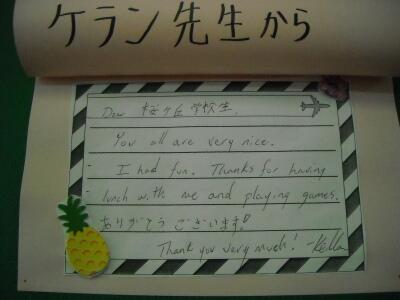 ケラン先生から
Dear 桜ケ丘学校生
You all are very nice.
I had fun. Thanks for having
lunch with me and playing games.
ありがとうございます!
Thank you very much! -Kellan